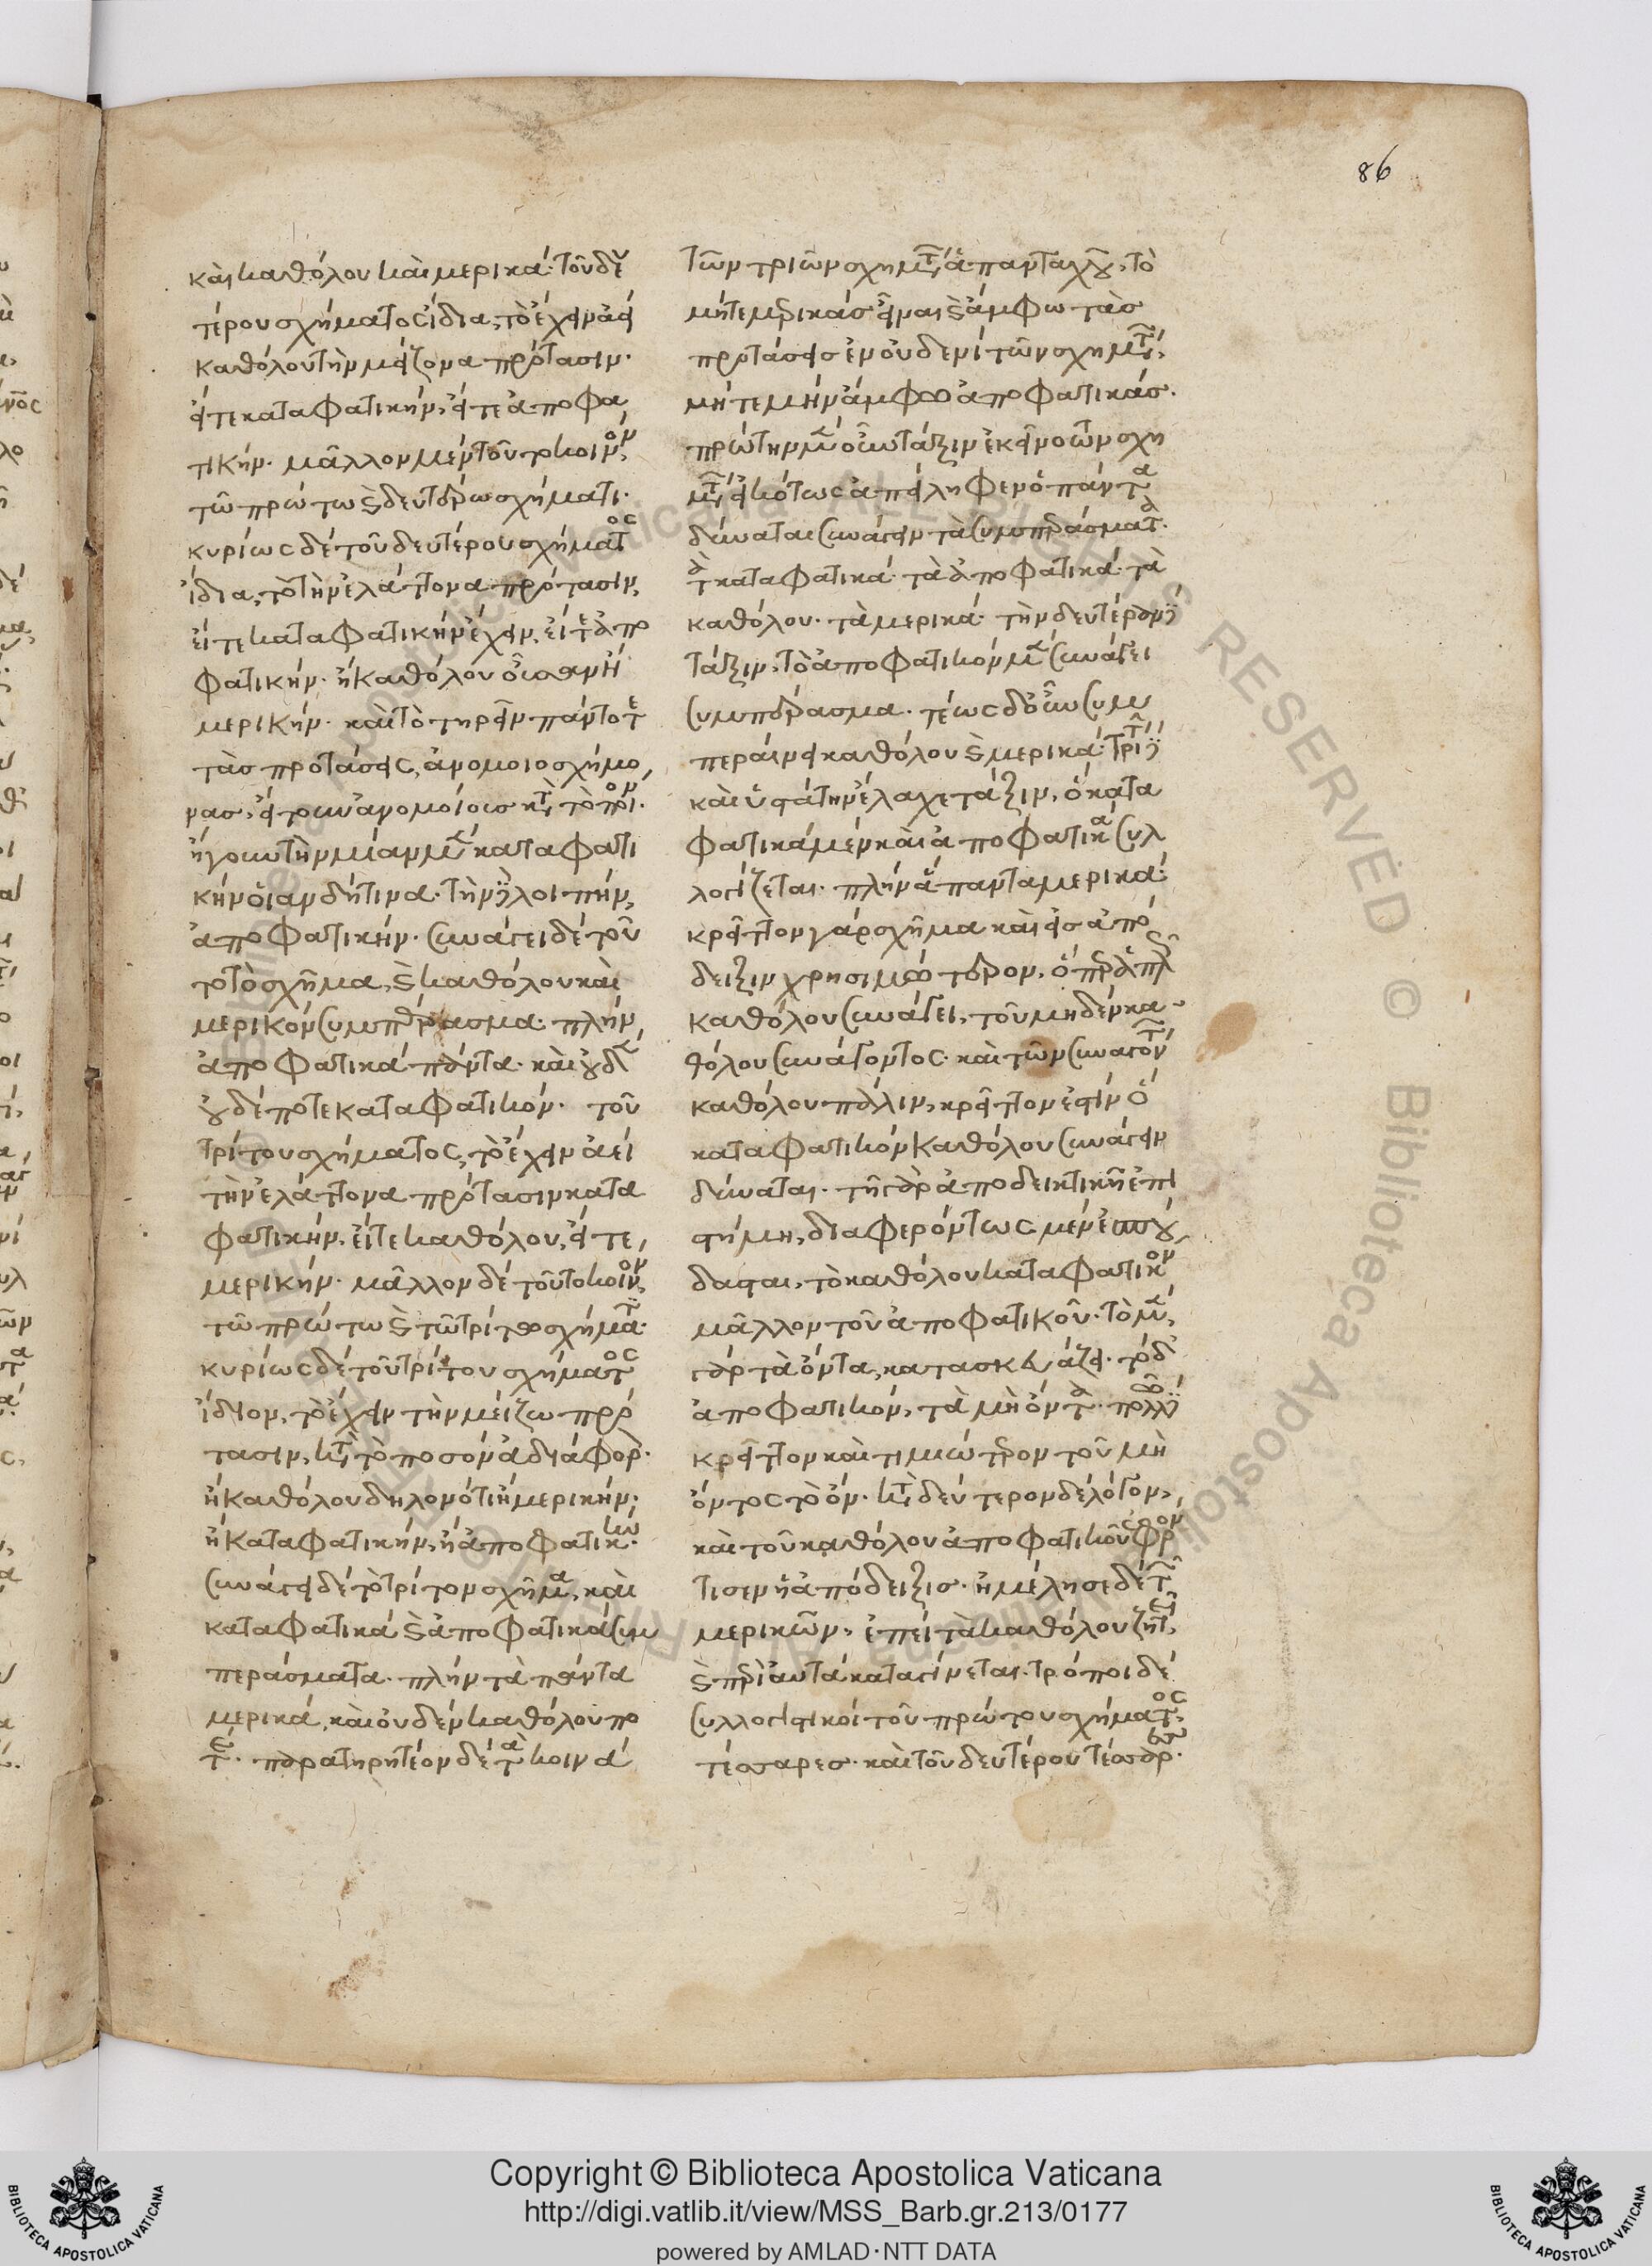 86
καὶ καθόλου καὶ μερικά· τοῦ δευ
τέρου σχήματος ἴδια, τὸ ἔχειν ἀεὶ
καθόλου τὴν μείζονα πρότασιν·
εἴτε καταφατικήν, εἴτε ἀποφα
τικήν· μᾶλλον μὲν τοῦτο κοινόν,
τῶ πρώτω καὶ δευτέρω σχήματι·
κυρίως δὲ τοῦ δευτέρου σχήματος
ἴδια, τὸ τὴν ἐλάττονα πρότασιν,
εἴτε καταφατικὴν ἔχειν, εἴτε ἀπο
φατικήν· ἢ καθόλου οὖσαν ἢ
μερικήν· καὶ τὸ τηρεῖν πάντοτε
τὰς προτάσεις, ἀνομοιοσχήμο
νας, εἴτουν ἀνομοίους κατὰ τὸ ποιόν·
ἤγουν τὴν μίαν μὲν καταφατι
κὴν οἵαν δήτινα· τὴν δὲ λοιπήν,
ἀποφατικήν· συνάγει δὲ τοῦ
το τὸ σχῆμα, καὶ καθόλου καὶ
μερικὸν συμπέρασμα· πλὴν,
ἀποφατικὰ πάντα· καὶ οὐδὲν
οὐδέποτε καταφατικόν· τοῦ
τρίτου σχήματος, τὸ ἔχειν ἀεὶ
τὴν ἐλάττονα πρότασιν κατα
φατικήν, εἴτε καθόλου, εἴτε,
μερικήν· μᾶλλον δὲ τοῦτο κοινόν,
τῶ πρώτω καὶ τῶ τρίτω σχήματι·
κυρίως δὲ τοῦ τρίτου σχήματος
ἴδιον, τὸ ἔχειν τὴν μείζω πρό
τασιν, κατὰ τὸ ποσὸν ἀδιάφορον·
ἢ καθόλου δηλονότι ἢ μερικήν·
ἢ καταφατικήν, ἢ ἀποφατικήν·
συνάγει δὲ τὸ τρίτον σχῆμα, καὶ
καταφατικὰ καὶ ἀποφατικὰ συμ
περάσματα· πλὴν τὰ πάντα
μερικά, καὶ οὐδὲν καθόλου πο
τέ· παρατηρητέον δὲ τὰ κοινά
τῶν τριῶν σχημάτων, ἃ πανταχοῦ, τὸ
μήτε μερικὰς εἶναι καὶ ἄμφω τὰς
προτάσεις ἐν οὐδενὶ τῶν σχημάτων,
μήτε μὴν ἄμφω ἀποφατικάς·
πρώτην μὲν οὖν τάξιν ἐκεῖνο τῶν σχη
μάτων εἰκότως ἀπείληφεν ὃ πάντα
δύναται συνάγειν τὰ συμπεράσματα·
τὰ καταφατικά· τὰ ἀποφατικά· τὰ
καθόλου· τὰ μερικά· τὴν δευτέραν δὲ
τάξιν, τὸ ἀποφατικὸν μὲν συνάγει
συμπέρασμα· τέως δ᾽ οὖν συμ
περαίνει καθόλου καὶ μερικά· τρίτην δὲ
καὶ ὑστάτην ἔλαχε τάξιν, ὃ κατα
φατικὰ μὲν καὶ ἀποφατικὰ συλ
λογίζεται· πλὴν ἅπαντα μερικά·
κρεῖττον γὰρ σχῆμα καὶ εἰς ἀπό
δειξιν χρησιμώτερον, ὅπερ ἁπλῶς
καθόλου συνάγει, τοῦ μηδὲν κα
θόλου συνάγοντος· καὶ τῶν συναγόντων
καθόλου πάλιν, κρεῖττον ἐστὶν ὃ
καταφατικὸν καθόλου συνάγειν
δύναται· τῆ γὰρ ἀποδεικτικῆ ἐπι
στήμη, διαφερόντως μὲν ἐσπού
δασται, τὸ καθόλου καταφατικὸν
μᾶλλον τοῦ ἀποφατικοῦ· τὸ μὲν,
γὰρ τὰ ὄντα, κατασκευάζει· τὸ δὲ
ἀποφατικὸν, τὰ μὴ ὄντα· πολλῶ δὲ
κρεῖττον καὶ τιμιώτερον τοῦ μὴ
ὄντος τὸ ὄν· κατὰ δεύτερον δὲ λόγον,
καὶ τοῦ καθόλου ἀποφατικοῦ ἐφρόν
τισεν ἡ ἀπόδειξις· ἠμέλησε δὲ τῶν
μερικῶν, ἐπεὶ τὰ καθόλου ζητεῖ,
καὶ περὶ αὐτὰ καταγίνεται· τρόποι δὲ
συλλογιστικοὶ τοῦ πρώτου σχήματος,
τέσσαρες· καὶ τοῦ δευτέρου τέσσαρες·
Copyright © Biblioteca Apostolica Vaticana
http://digi.vatlib.it/view/MSS_Barb.gr.213/0177
powered by AMLAD·NTT DATA